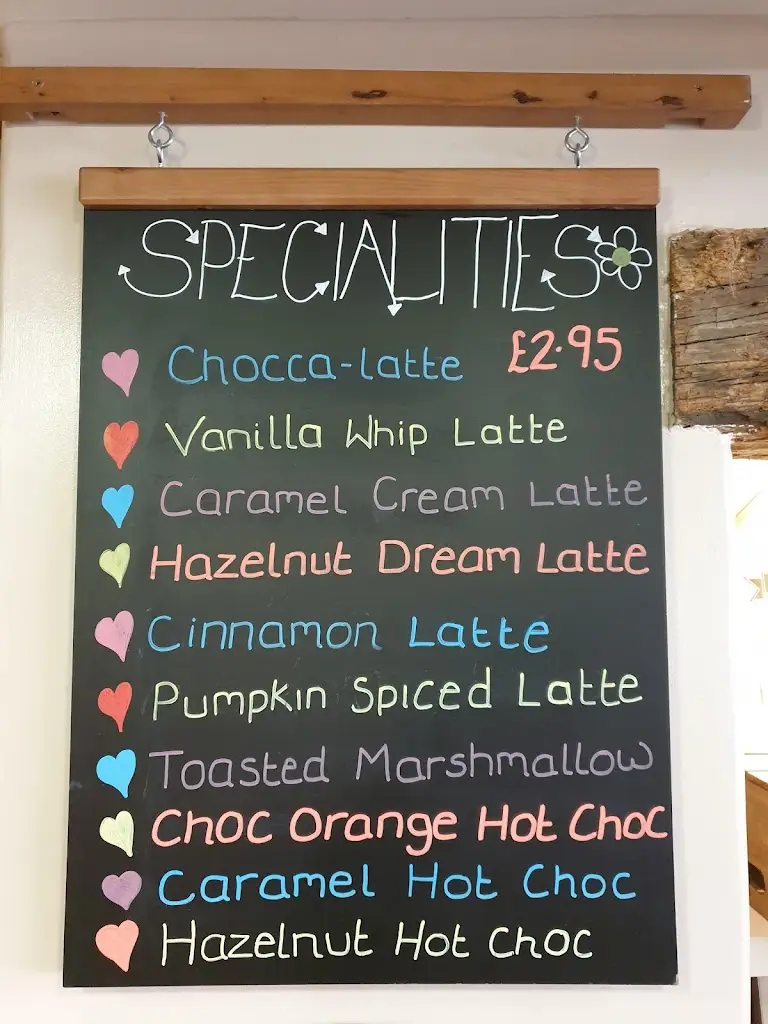 SPECIALITIES
Chocca-latte £2.95
Vanilla Whip Latte
Caramel Cream Latte
Hazelnut Dream Latte
Cinnamon Latte
Pumpkin Spiced Latte
Toasted Marshmallow
Choc Orange Hot Choc
Caramel Hot Choc
Hazelnut Hot Choc